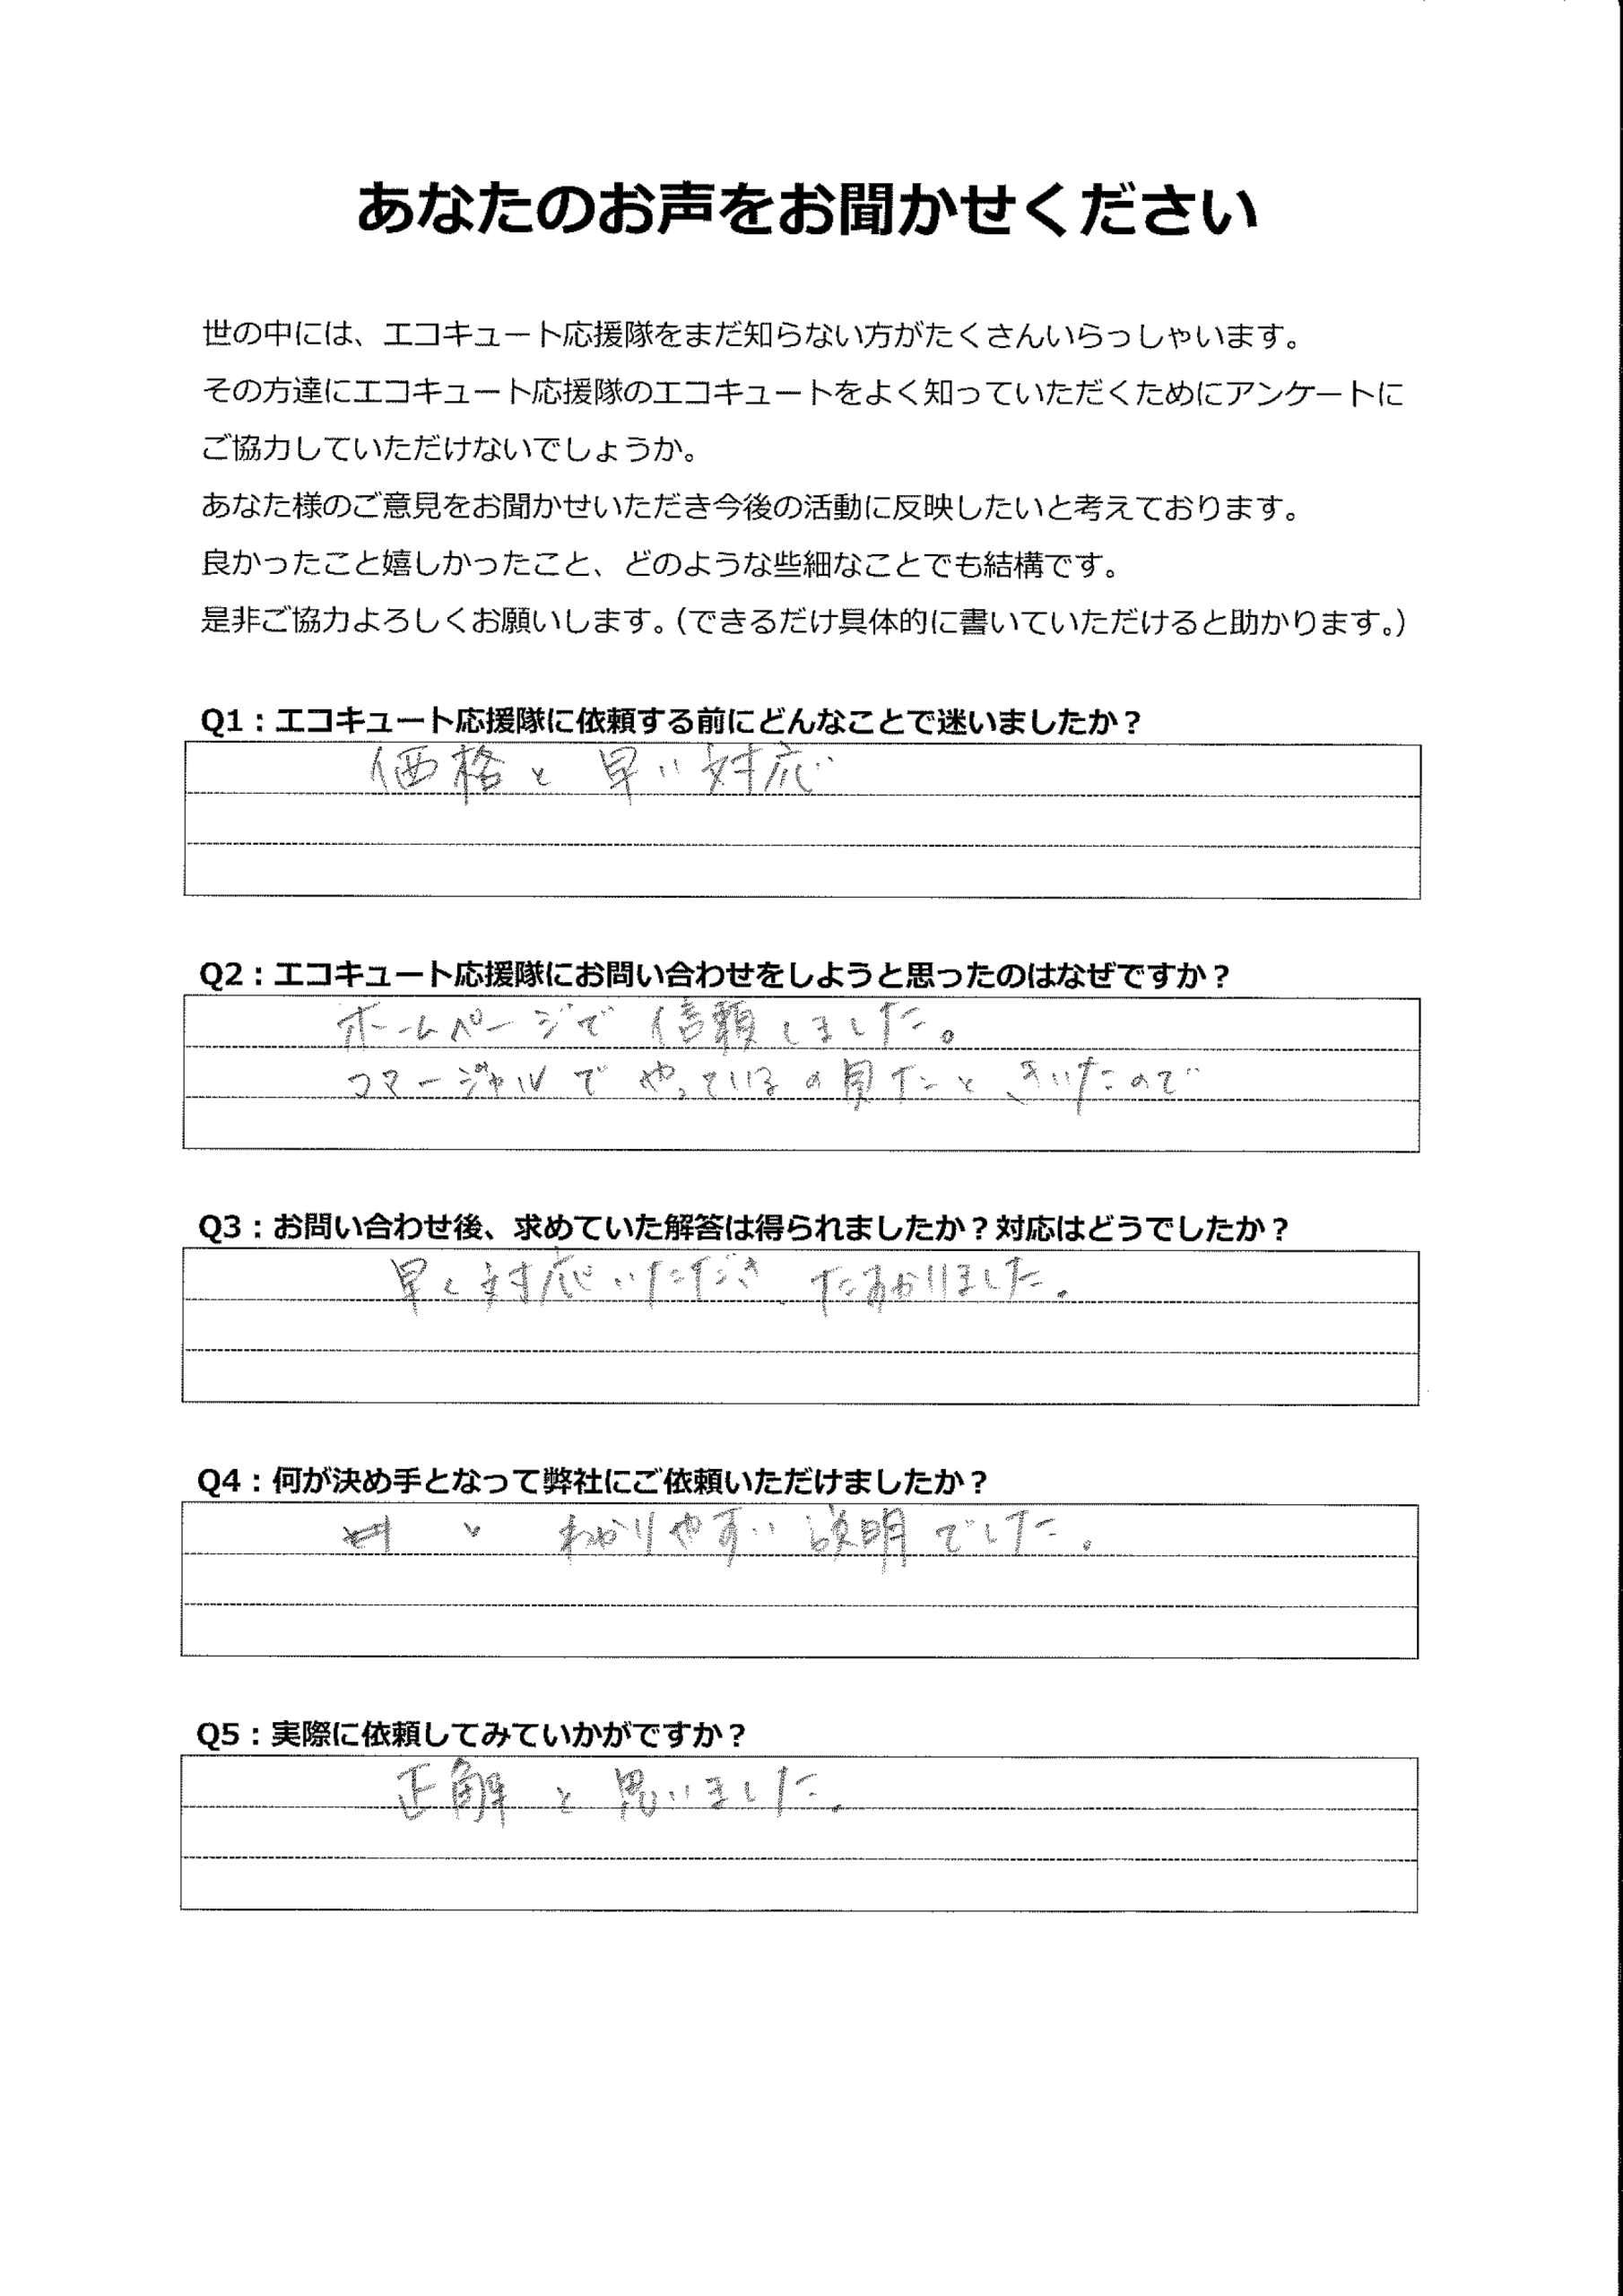 あなたのお声をお聞かせください
世の中には、エコキュート応援隊をまだ知らない方がたくさんいらっしゃいます。
その方達にエコキュート応援隊のエコキュートをよく知っていただくためにアンケートに
ご協力していただけないでしょうか。
あなた様のご意見をお聞かせいただき今後の活動に反映したいと考えております。
良かったこと嬉しかったこと、どのような些細なことでも結構です。
是非ご協力よろしくお願いします。（できるだけ具体的に書いていただけると助かります。）
Q1：エコキュート応援隊に依頼する前にどんなことで迷いましたか？
価格と早い対応
Q2：エコキュート応援隊にお問い合わせをしようと思ったのはなぜですか？
ホームページで信頼しました。
コマーシャルでやっているの見たときいたので
Q3：お問い合わせ後、求めていた解答は得られましたか？対応はどうでしたか？
早く対応いただき、たすかりました。
Q4：何が決め手となって弊社にご依頼いただけましたか？
わかりやすい説明でした。
Q5：実際に依頼してみていかがですか？
正解と思いました。